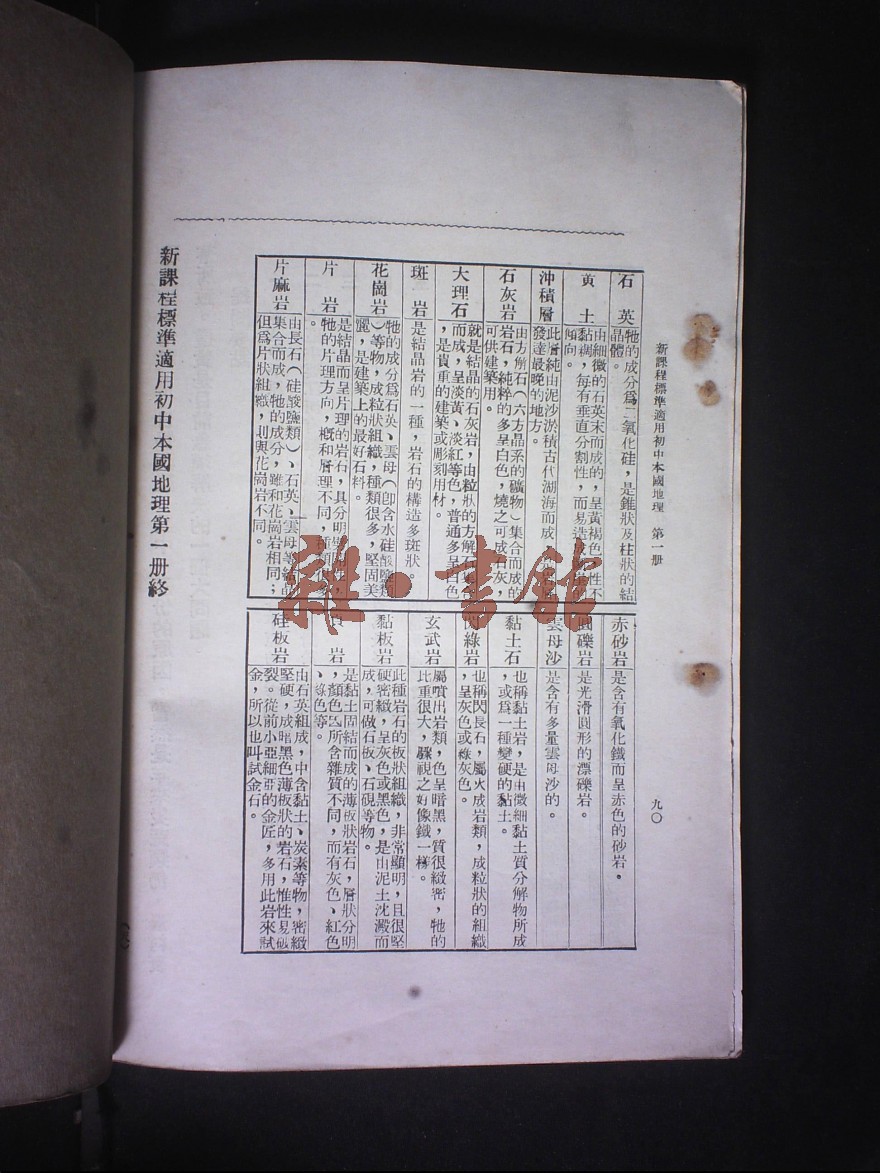 新課程標準適用初中本國地理 第一册
九〇
石英
牠的成分爲二氧化硅,是錐狀及柱狀的結
晶體。
黄土
由細微的石英末而成的,呈黃褐色 性不
黏稠,每有垂直分割性,而易造成
傾向。
沖積層
此層純由泥沙淤積古代湖海而成
發達最晚的地方。
石灰岩
由方解石(六方晶系的礦物)集合而成的
岩石,純粹的多呈白色,燒之可成石灰,
可供建築用。
大理石
就是結晶的石灰岩,由粒狀的方解石
而成,呈淡黃、淡紅等色,普通多呈白色
,是貴重的建築或彫刻用材。
斑岩
是結晶岩的一種,岩石的構造多斑狀。
花崗岩
牠的成分爲石英、雲母(卽含水硅酸鹽類
)等物,成粒狀組織,種類很多,堅固美
麗,是建築上的最好石料。
片岩
是結晶而呈片理的岩石,具分明
牠的片理方向,概和層理不同,
。
片麻岩
由長石(硅酸鹽類)、石英、雲母等結晶
集合而成,牠的成分,雖和花崗岩相同;
但爲片狀組織,則與花崗岩不同。
赤砂岩
是含有氧化鐵而呈赤色的砂岩。
圓礫岩
是光滑圓形的漂礫岩。
雲母沙
是含有多量雲母沙的。
黏土石
也稱黏土岩,是由微細黏土質分解物所成
,或爲一種變硬的黏土。
閃綠岩
也稱閃長石,屬火成岩類,成粒狀的組織
,呈灰色或綠灰色。
玄武岩
屬噴出岩類,色呈暗黑,質很緻密,牠的
比重很大,驟視之好像鐵一樣。
黏板岩
此種岩石的板狀組織,非常顯明,且很堅
硬密緻,呈灰色或黑色,是由泥土沈澱而
成,可做石板、石硯等物。
頁岩
是黏土固結而成的薄板狀岩石,層狀分明
,顏色因所含雜質不同,而有灰色、紅色
、綠色等。
硅板岩
由石英組成,中含黏土、炭素等物,密緻
堅硬,成暗黑色薄板狀的岩石,惟性易破
裂。從前小亞細亞的金匠,多用此岩來試
金,所以也叫試金石。
新課程標準適用初中本國地理第一册終
雜·書館